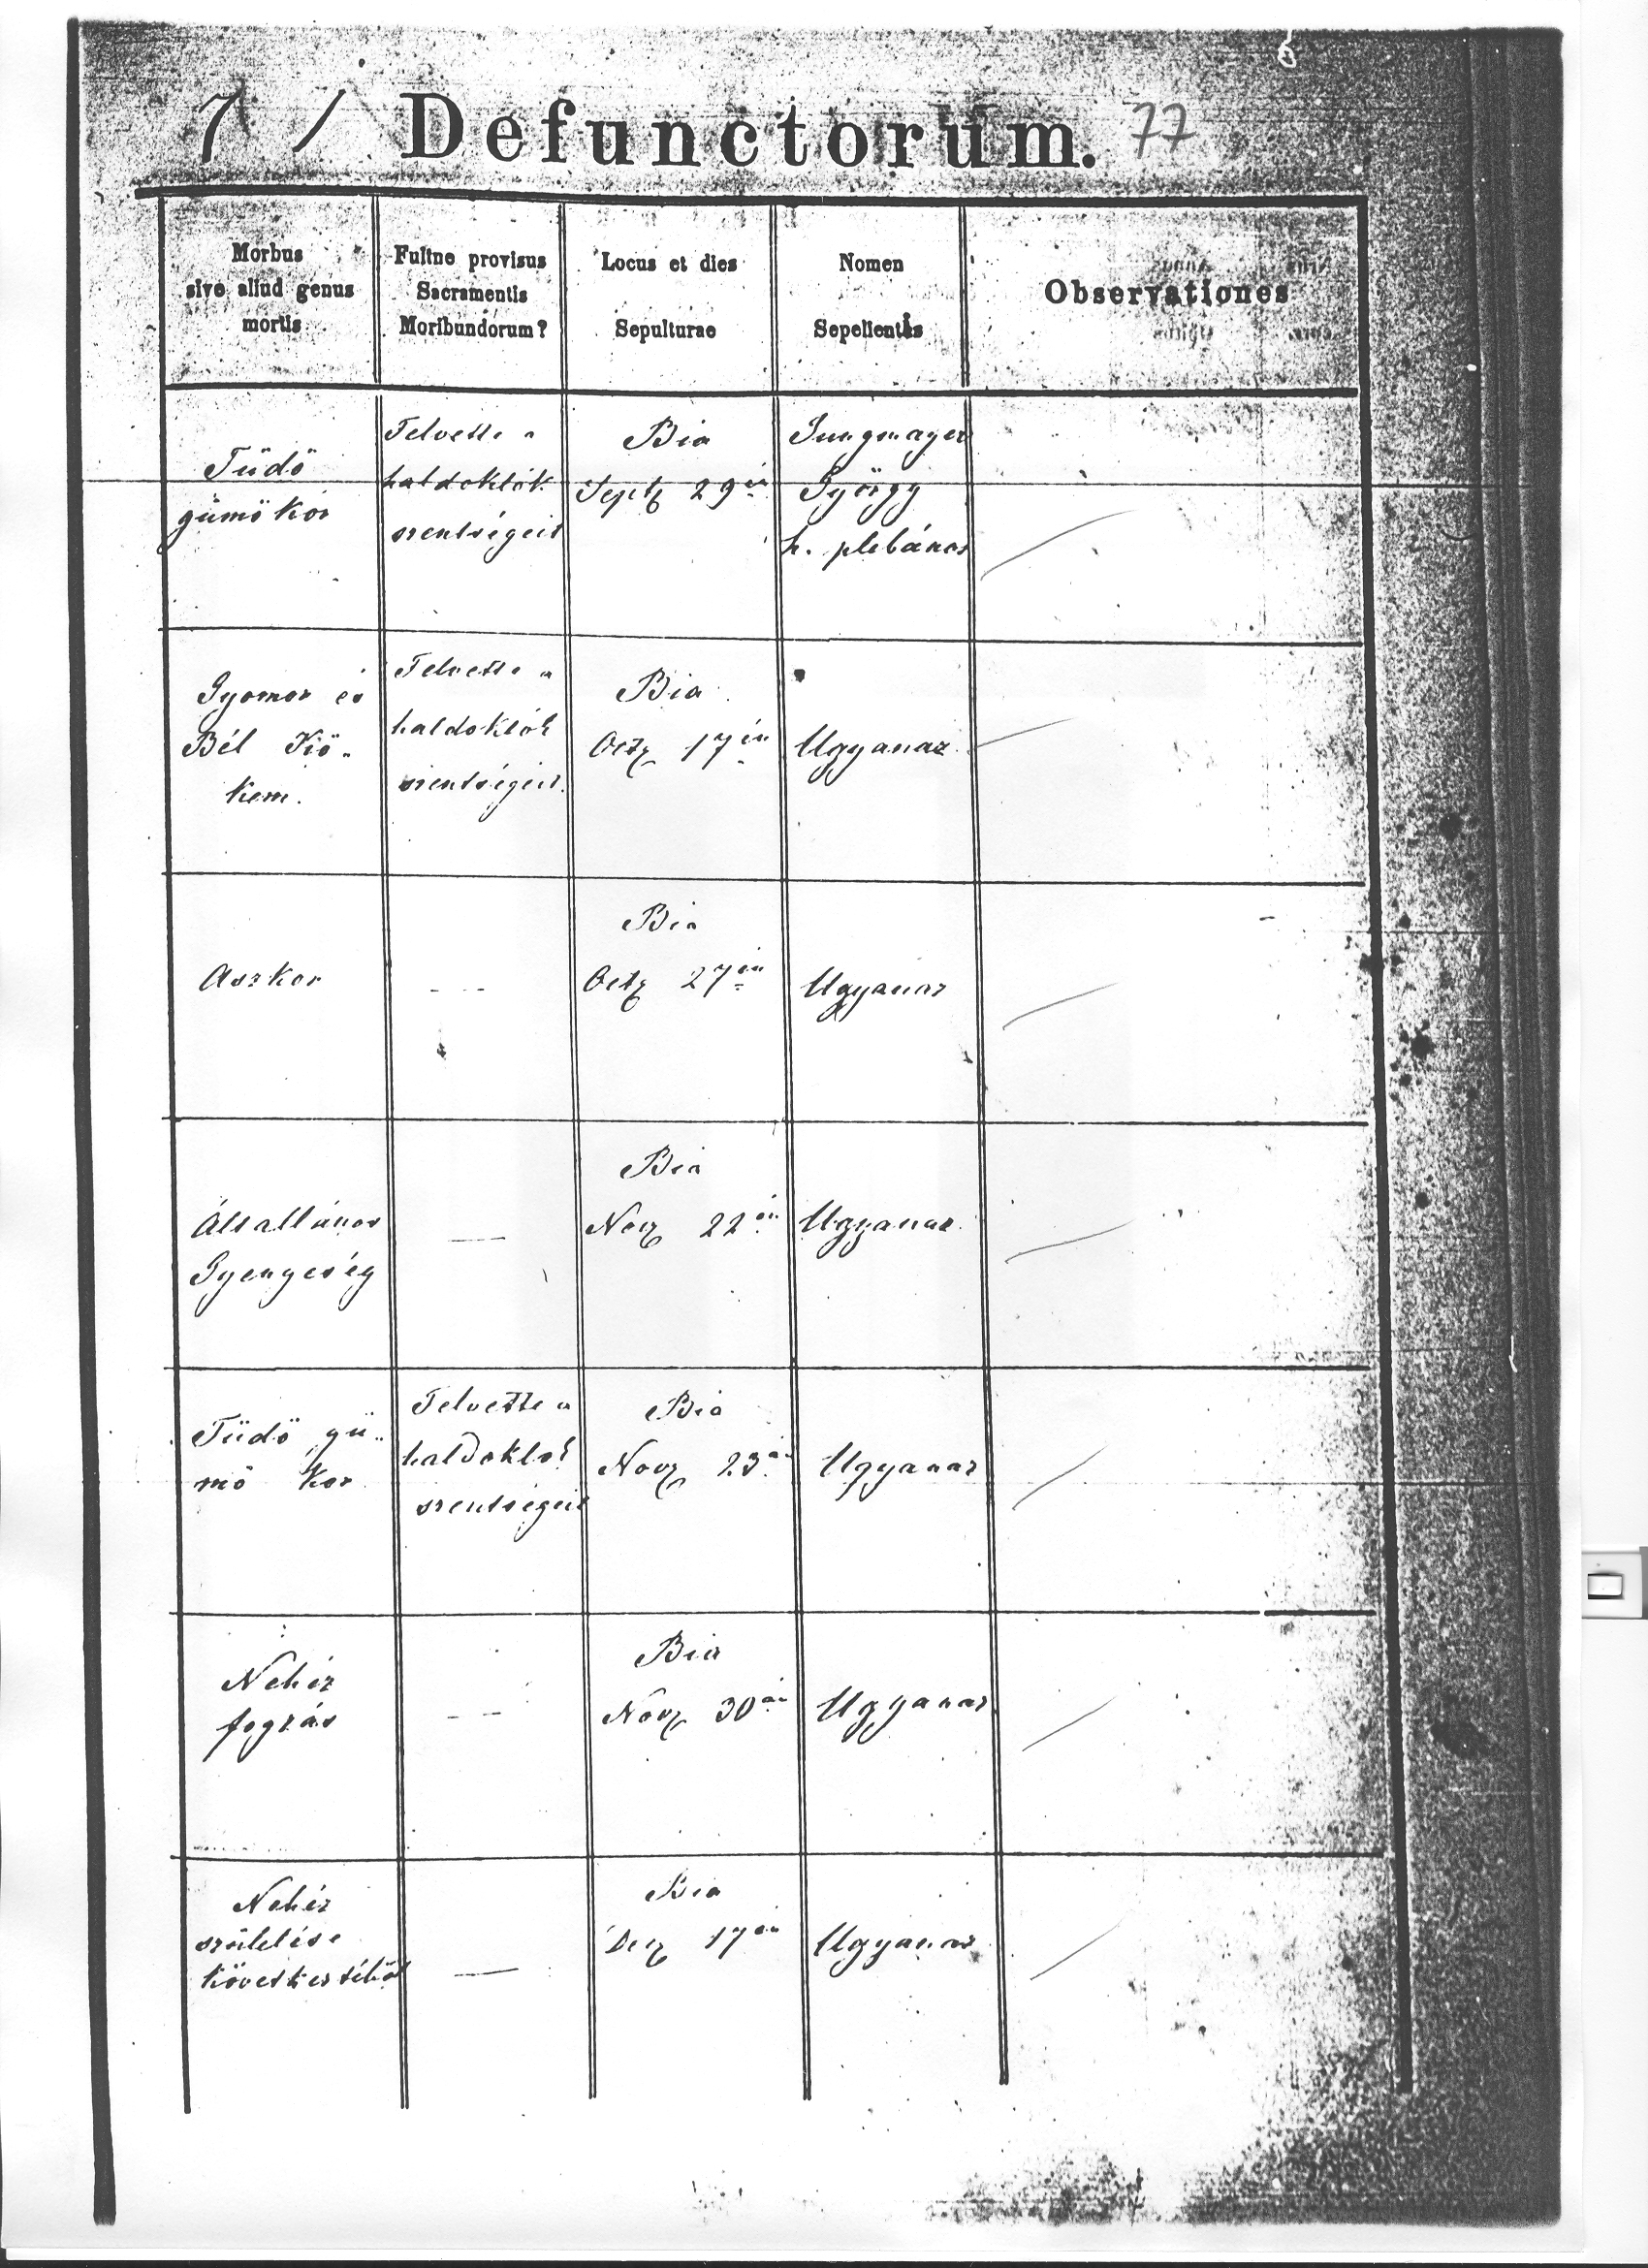 7 / Defunctorum. 77
Morbus
sive aliud genus
mortis
Fuitne provisus
Sacramentis
Moribundorum?
Locus et dies
Sepulturae
Nomen
Sepelientis
Observationes
Tüdö
gümö kór
Felvette a
haldoklók
szentségeit
Bia
Septz 29én
Jungmayer
György
h. plebános
Gyomor és
Bél
Felvette a
haldoklók
szentségeit.
Bia
Octz 17én
Ugyanaz
Aszkor
- - -
Bia
Octz 27én
Ugyanaz
Által lános
Gyengeség
—
Bia
Novz 22én
Ugyanaz
Tüdö gü-
mö kor
Felvette a
haldoklók
szentségeit
Bia
Novz 23án
Ugyanaz
Nehéz
fogzás
- -
Bia
Novz 30án
Ugyanaz
Nehéz
születése
következtéből
—
Bia
Dez 17én
Ugyanaz